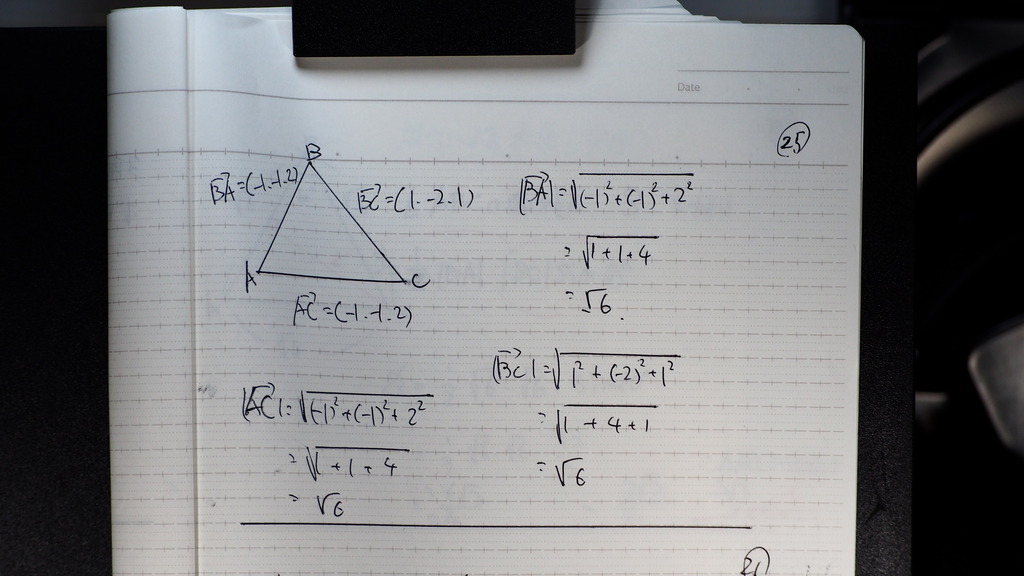 Date
25
B
BA→=(-1.-1.2)
BC→=(1.-2.1)
A
C
AC→=(-1.-1.2)
|BA→|=√(-1)²+(-1)²+2²
=√1+1+4
=√6.
|BC→|=√1²+(-2)²+1²
=√1+4+1
=√6
|AC→|=√(-1)²+(-1)²+2²
=√1+1+4
=√6